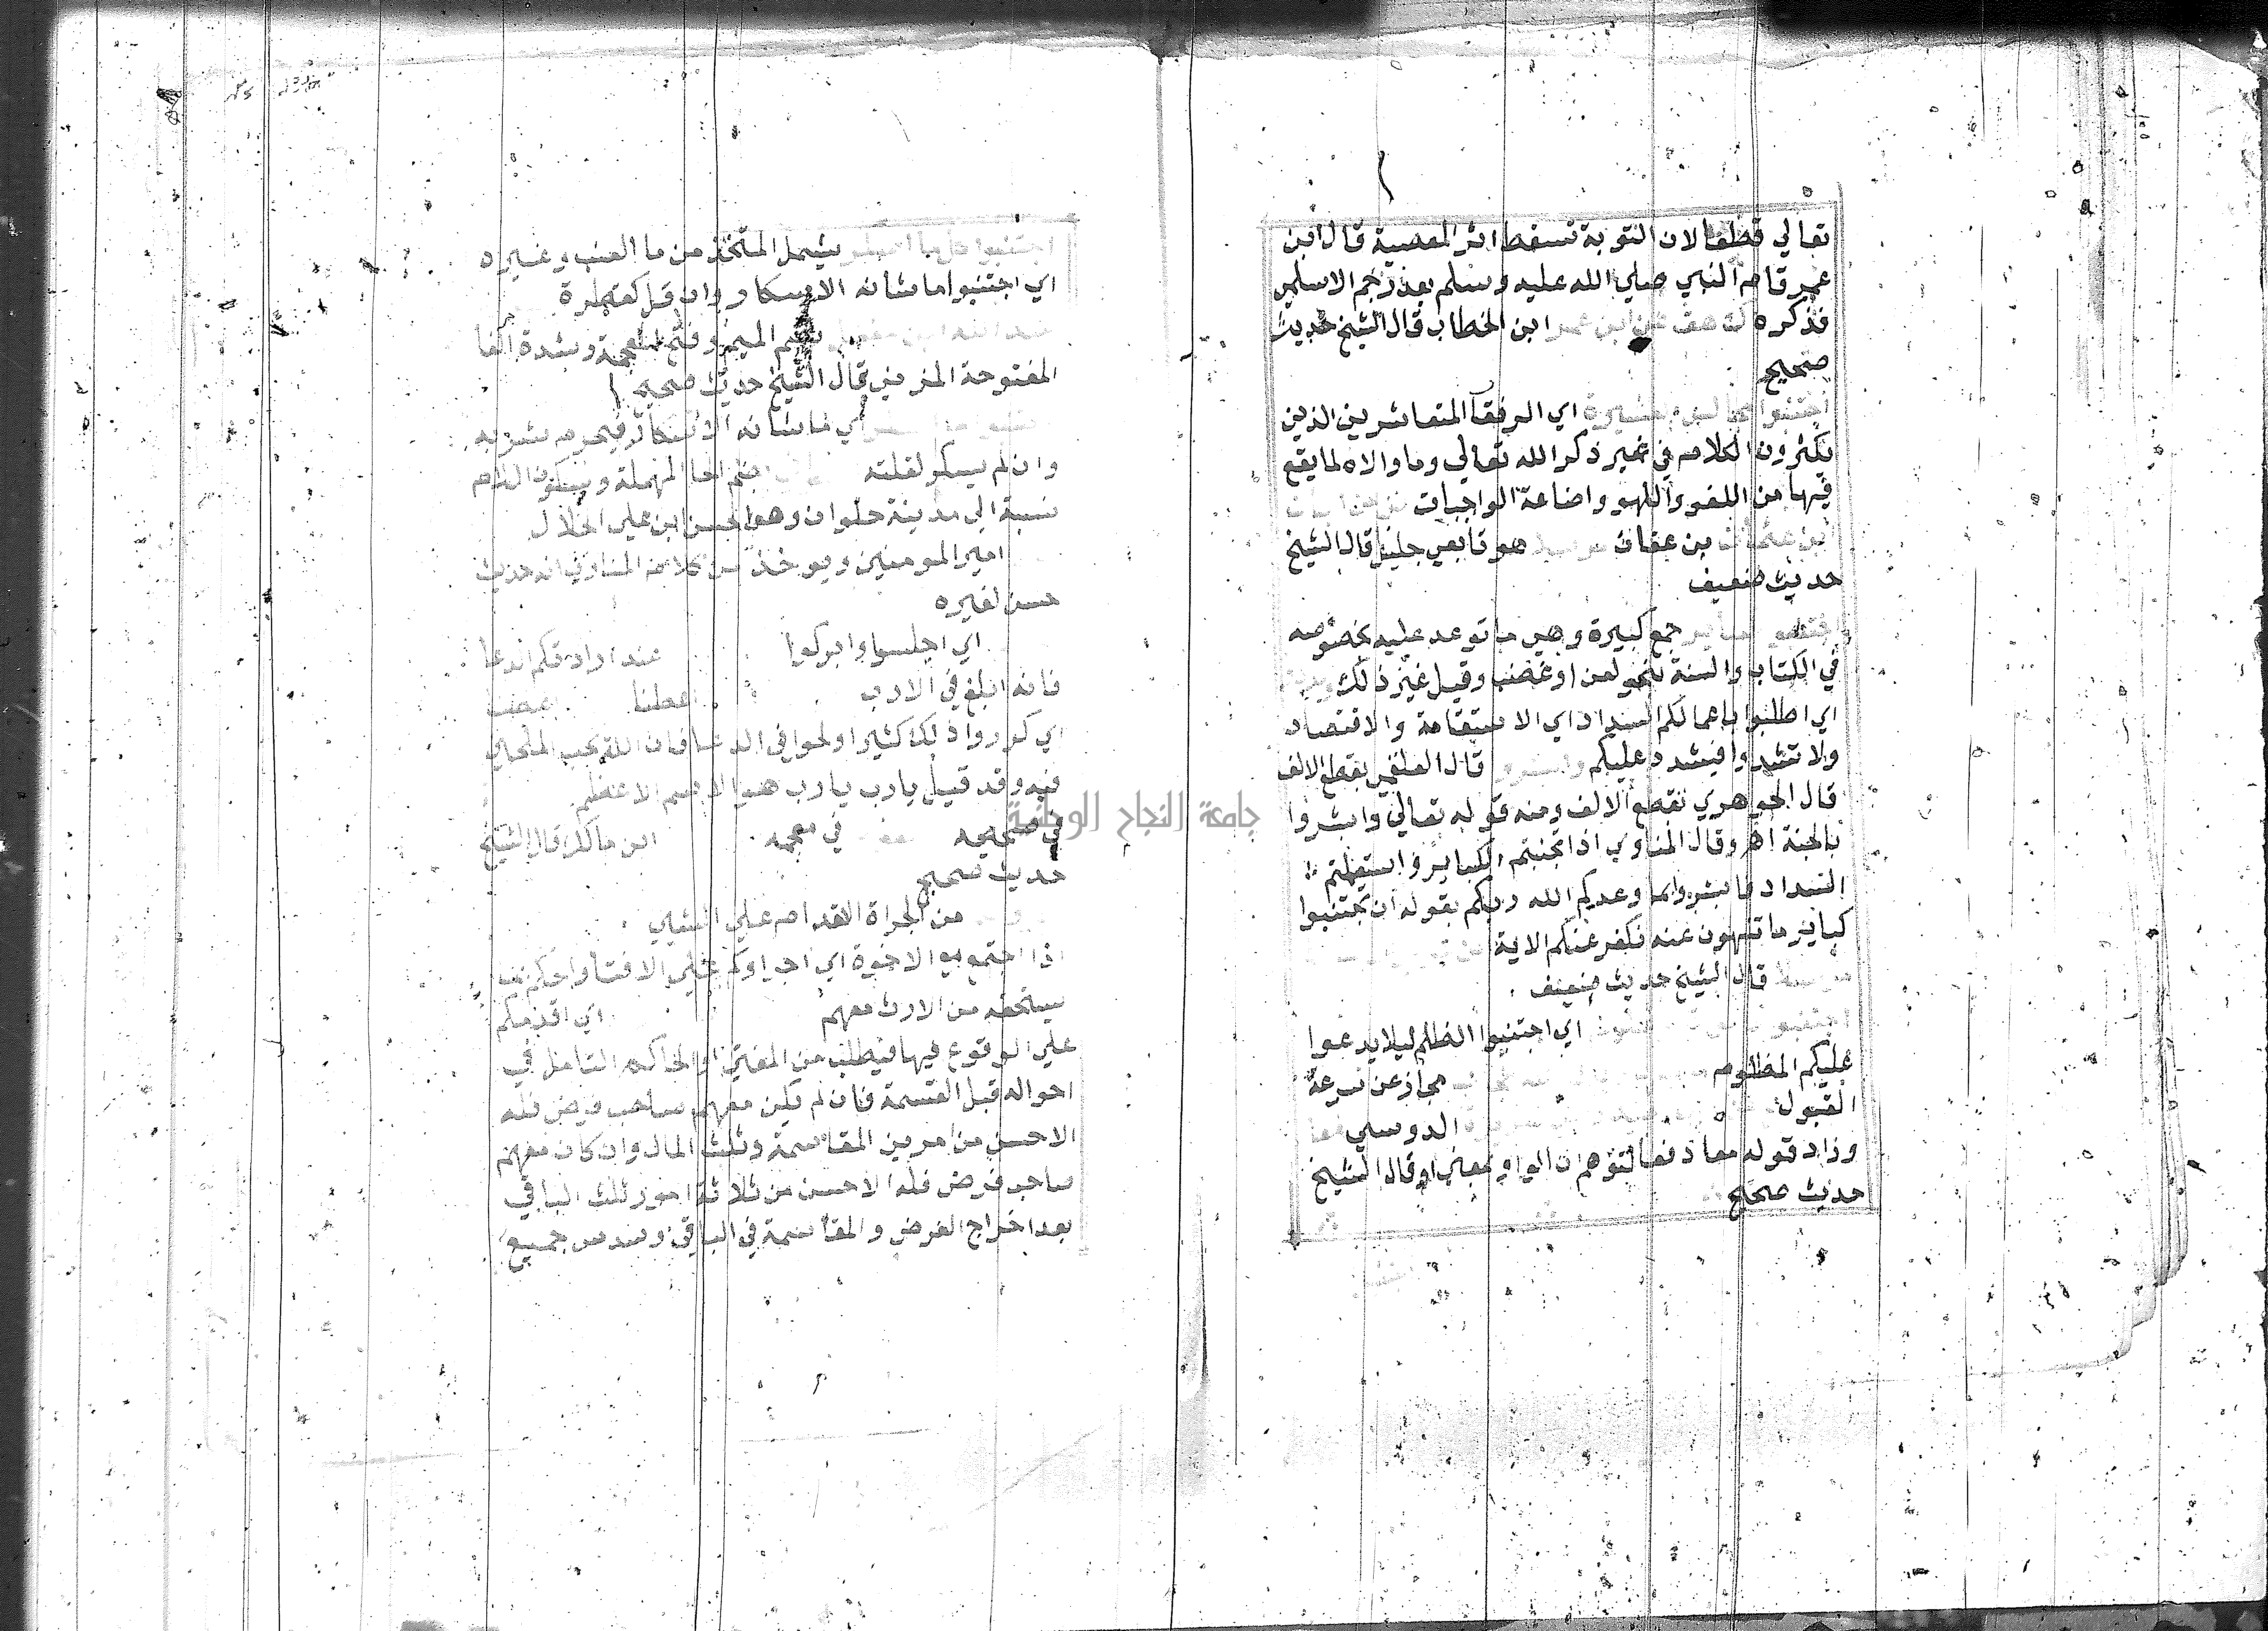 تعالي قطعا لان التوبة تسقط اثر المعصية قال ابن
عمر قام النبي صلي الله عليه وسلم بعد رجم الاسلمي
فذكره ك هق عن ابن عمر ابن الخطاب قال الشيخ حديث
صحيح
اجتنبوا مجالس العشيرة اي الرفقا المتعاشرين الذين
يكثرون الكلام في غير ذكر الله تعالي وما والاه لما يقع
فيها من اللغو واللهو واضاعة الواجبات
ابن عثمان بن عفان مرسلا هو تابعي جليل قال الشيخ
حديث ضعيف
اجتنبوا الكبائر جمع كبيرة وهي ما توعد عليه بخصوصه
في الكتاب والسنة بنحو لعن او غضب وقيل غير ذلك
اي اطلبوا باعمالكم السداد اي الاستقامة والاقتصاد
ولا تشددوا فيشدد عليكم وابشروا قال العلقمي بقطع الالف
قال الجوهري بقطع الالف ومنه قوله تعالي وابشروا
بالجنة اهـ وقال المناوي اذا تجنبتم الكباير واستعملتم
السداد فابشروا بما وعدكم الله ربكم بقوله ان تجتنبوا
كباير ما تنهون عنه نكفر عنكم الاية
مرسلا قال الشيخ حديث ضعيف
اجتنبوا اي اجتنبوا الظلم ليلا يدعوا
عليكم المظلوم مجاز عن سرعة
القبول الدوسي معا
وزاد قوله معا دفعا لتوهم ان الواو بمعني او قال الشيخ
حديث صحيح
اجتنبوا كل ما اسكر يشمل المتخذ من ما العنب وغيره
اي اجتنبوا ما شانه الاسكار وان قل كقطرة
بضم الميم وفتح المعجمة وشدة الفا
المفتوحة المزني قال الشيخ حديث صحيح
اي ما شانه الاسكار فيحرم شربه
وان لم يسكر لقلته بضم الحا المهملة وسكون اللام
نسبة الي مدينة حلوان وهو الحسن ابن علي الخلال
امير المومنين ويوخذ من كلام المناوي انه حديث
حسن لغيره
اي اجلسوا وابركوا عند ارادتكم الدعا
فانه ابلغ في الادب اعطنا اعطنا
اي كرروا ذلك كثيرا والحوا في الدعا فان الله يحب الملحين
فيه وقد قيل يارب يارب هو الاسم الاعظم
في صحيحه في معجمه ابن مالك قال الشيخ
حديث صحيح
من الجراة الاقدام علي الشي
اذا اجتمع مع الاخوة اي اجراوكم علي الافتا والحكم بما
يستحقه من الارث معهم اي اقدمكم
علي الوقوع فيها فيطلب من المفتي او الحاكم التامل في
احواله قبل القسمة فان لم يكن معهم صاحب فرض فله
الاحسن من امرين المقاسمة وثلث المال وان كان معهم
صاحب فرض فله الاحسن من ثلاثة امور ثلث الباقي
بعد اخراج الفرض والمقاسمة في الباقي وسدس جميع
جامعة النجاح الوطنية